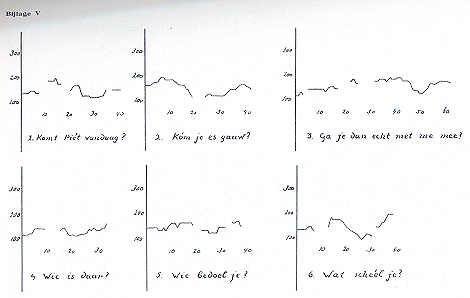 Bijlage V
300 300 300
200 200 200
100 100 100
10 20 30 40 10 20 30 40 10 20 30 40 50 60
1. Komt Piét vandaag? 2. Kóm je es gauw? 3. Ga je dan echt met me mee?
300 300 300
200 200 200
100 100 100
10 20 30 10 20 30 40 10 20 30 40
4. Wie is daar? 5. Wie bedoel je? 6. Wat scheél je?